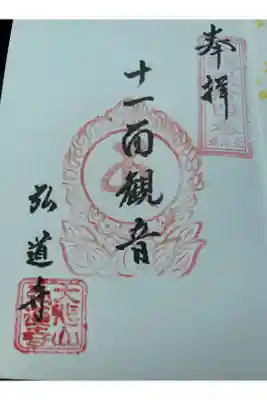 奉拝
十一面観音
弘道寺